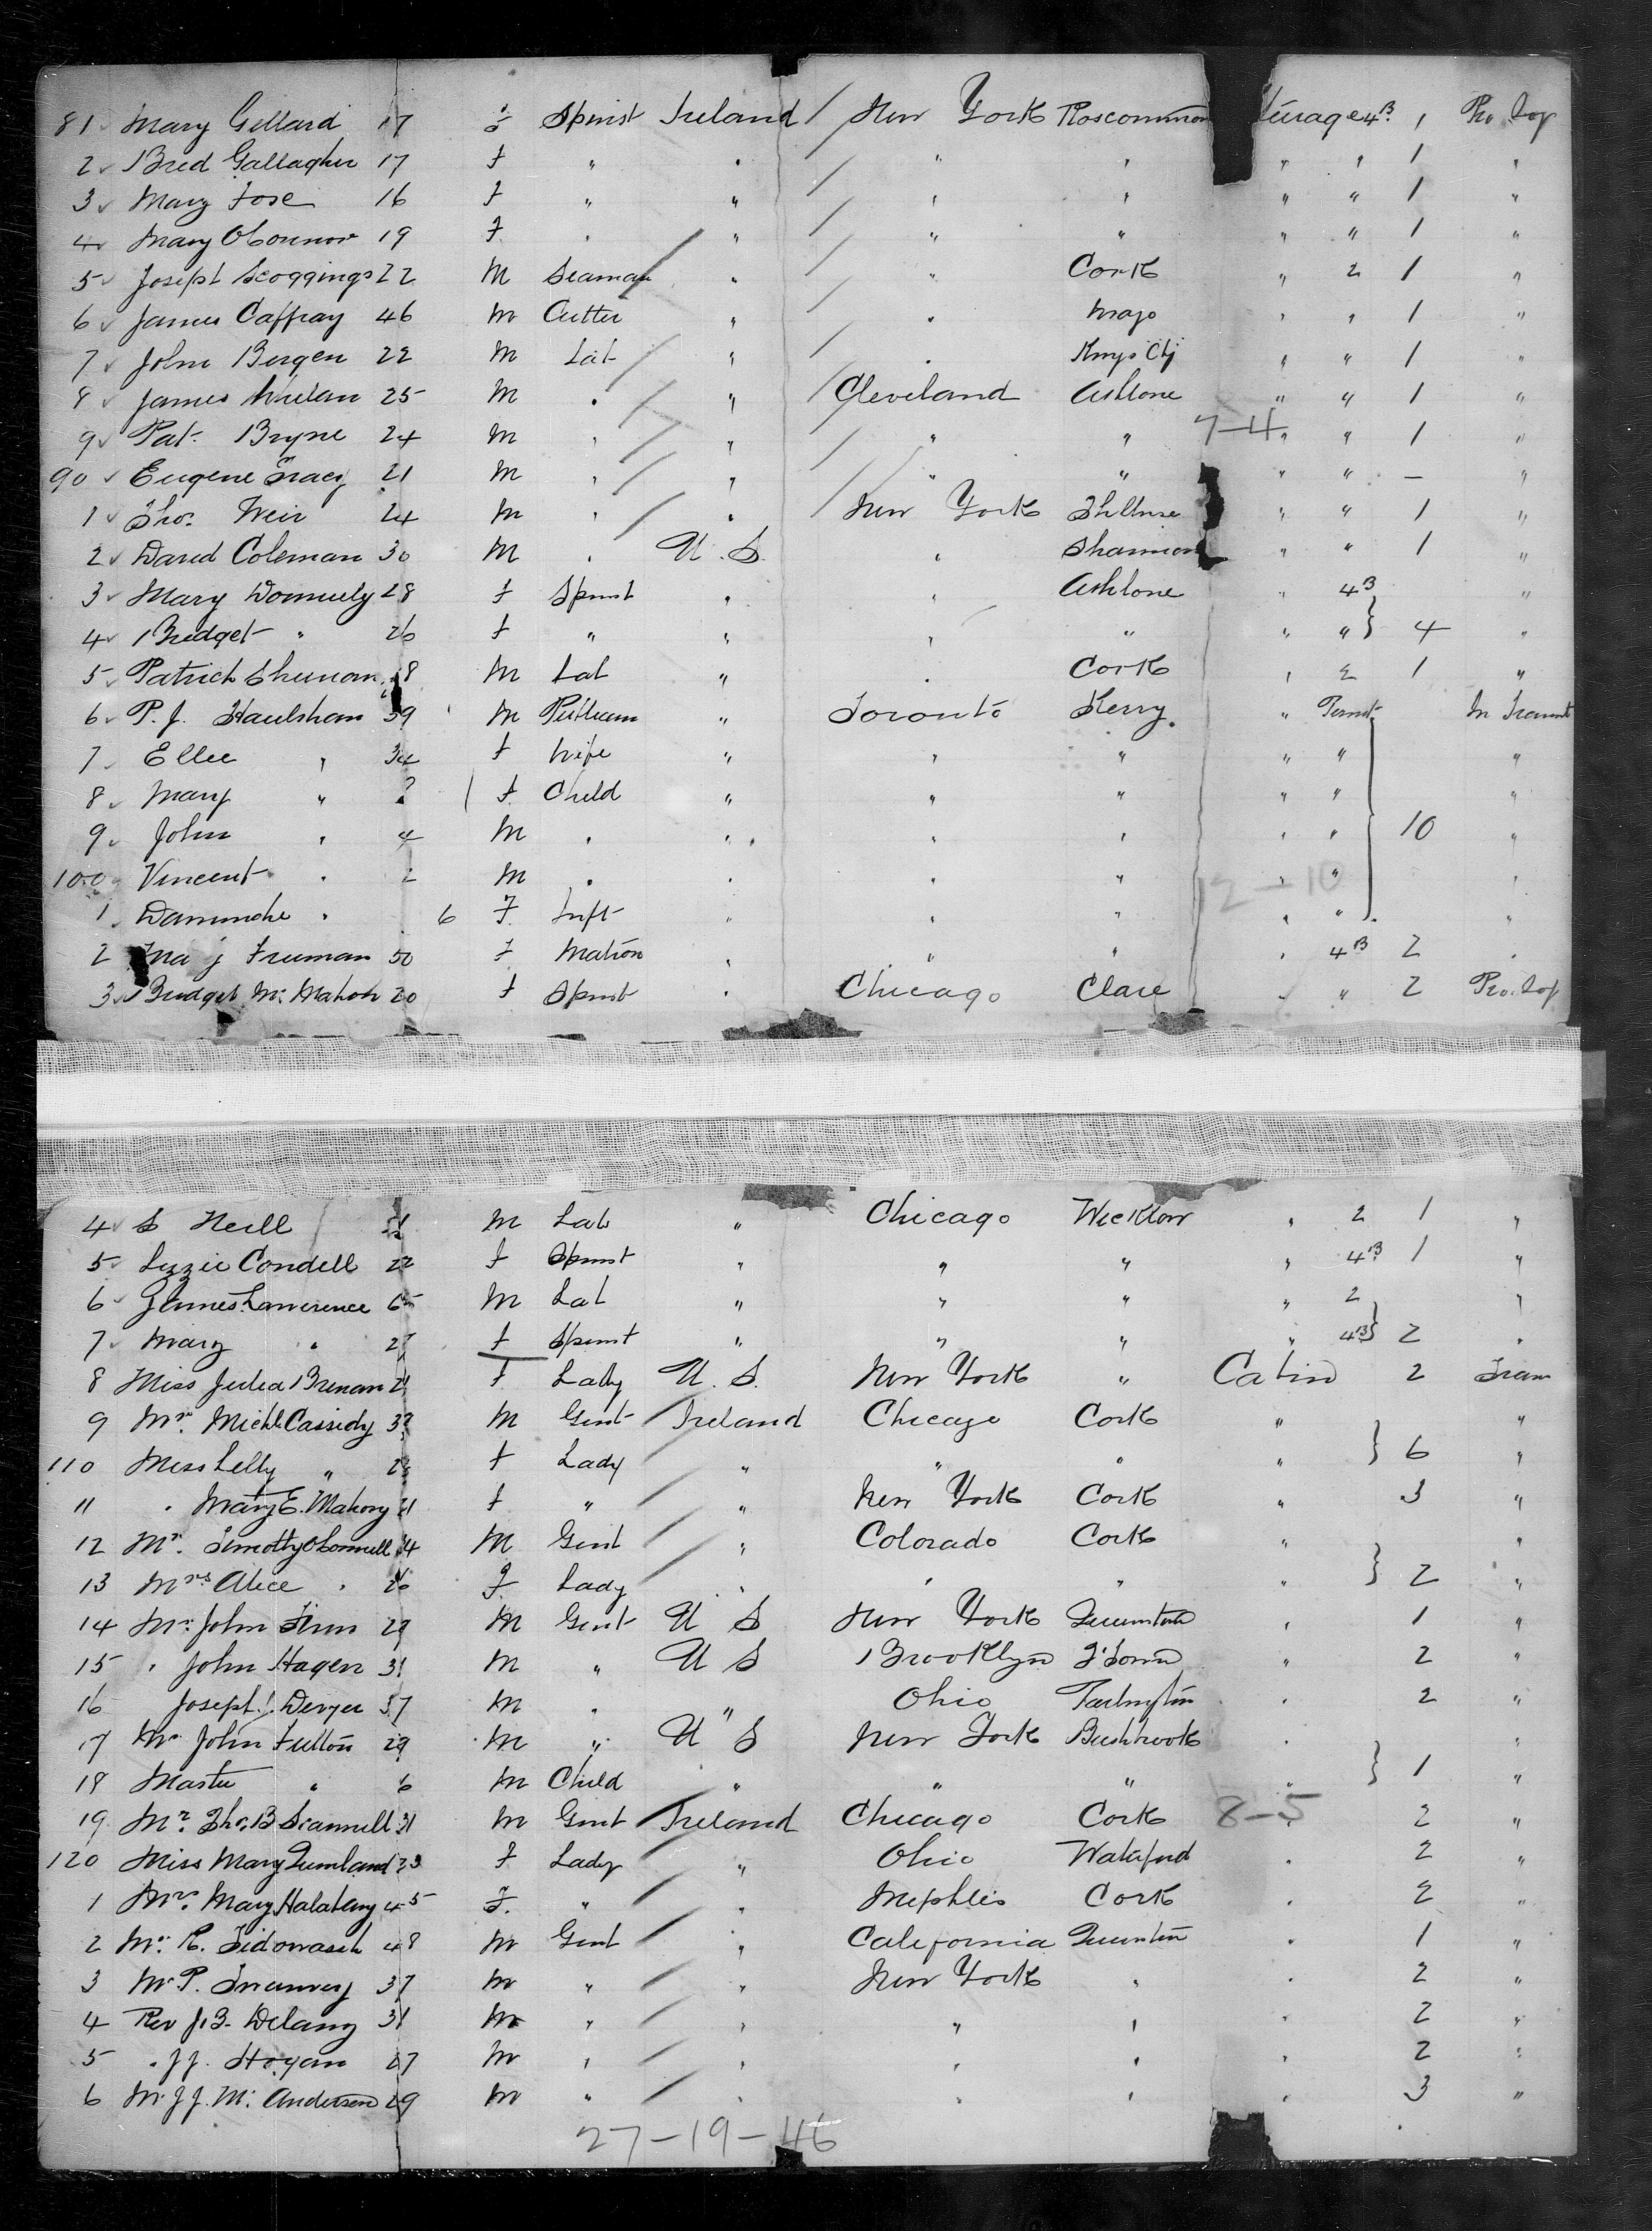 81 Mary Gillard 17 f Spinst Ireland / New York Roscommon 4B 1 Pro. Soj
2 Brid Gallagher 17 f " " / " " " " 1 "
3 Mary Fose 16 f " " / " " " " 1 "
4 Mary OConnor 19 f " " / " " " " 1 "
5 Joseph Scoggings 22 M Seaman " / " Cork " 2 1 "
6 James Caffray 46 M Cutter " / " Mayo " " 1 "
7 John Bergen 22 M Lab " / " Kings Cty " " 1 "
8 James Whelan 25 M " " / Cleveland Athlone " " 1 "
9 Pat. Bryne 24 M " " / " " 7-4 " " 1 "
90 Eugene Tracy 21 M " " / " " " " - "
1 Tho. Weir 24 M " " / New York " " 1 "
2 David Coleman 30 M " U.S. " Shannon " " 1 "
3 Mary Donnuely 28 f Spinst " " Athlone " 4B "
4 Bridget " 26 f " " " " " " } 4 "
5 Patrick 8 M Lab " " Cork " 2 1 "
6 P. J. Haulshan 39 M " Toronto Kerry. " In Transit
7 Ellie " 34 f Wife " " " " " "
8 Mary " f Child " " " " " "
9 John " 4 M " " " " " " 10 "
100 Vincent " 2 M " " " " " " 12-10 "
1 " 6 F. Inft " " " " " "
2 Freeman 50 f Matron " " " " 4B 2 "
3 Bridget Mc Mahon 20 f Spinst " Chicago Clare " " 2 Pro. Soj
4 S Neill M Lab " Chicago Wicklow " 2 1 "
5 Lizzie Condell 22 f Spinst " " " " 4B 1 "
6 James Lawrence 65 M Lab " " " " 2 "
7 Mary " 2 f Spinst " " " " 4B } 2 "
8 Miss Julia Brenan 2 f Lady U.S. New York " Cabin 2 Tran
9 Mr. Michl Cassidy 3 M Gent Ireland Chicago Cork " "
110 Miss Lelly " 2 f Lady " " " " } 6 "
11 " Mary E. Mahony 21 f " " New York Cork " 3 "
12 Mr. Timothy OConnell 34 M Gent " Colorado Cork " "
13 Mrs Alice " 26 f Lady " " " " } 2 "
14 Mr. John Finn 29 M Gent U S New York Queenstown " 1 "
15 " John Hagen 31 M " U S Brooklyn Q'Town " 2 "
16 Joseph Dwyer 37 M " " Ohio " 2 "
17 Mr John Fulton 29 M " U S New York Bushbrook " "
18 Master " 6 M Child " " " " } 1 "
19 Mr. Tho. B Scannell 31 M Gent Ireland Chicago Cork 8-5 " 2 "
120 Miss Mary Quinland 23 f Lady " Ohio Wataford " 2 "
1 Mrs. Mary Halaheny 45 F. " " Mephlis Cork " 2 "
2 Mr. R. 48 M Gent " California " 1 "
3 Mr P. 37 M " " New York " " 2 "
4 Rev J. B. Delany 31 M " " " " " 2 "
5 " J J. Hogan 27 M " " " " " 2 "
6 Mr J J. Mc Anderson 29 M " " " " " 3 "
27-19-46